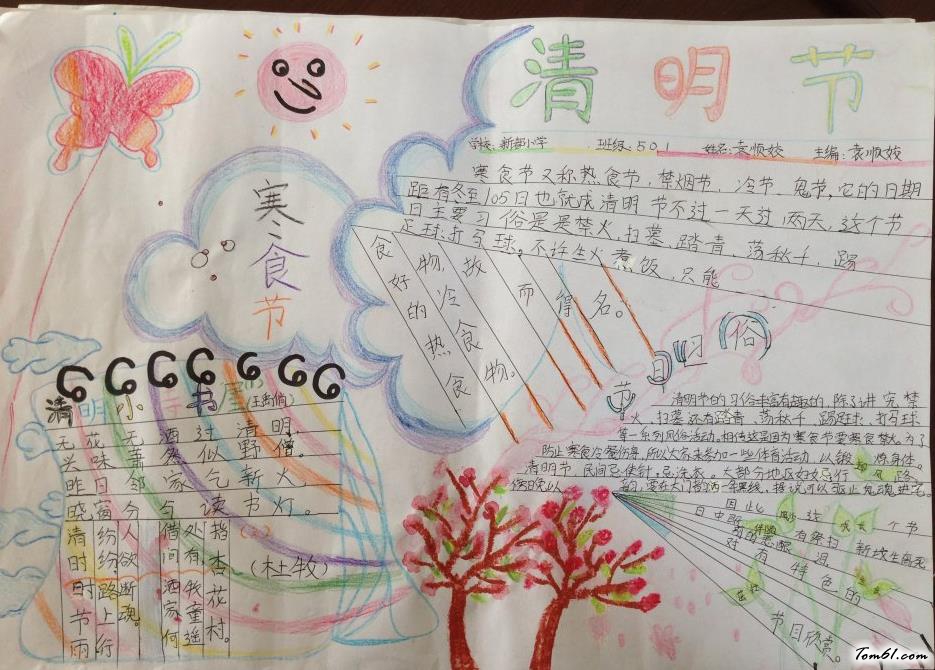 清明节
学校:新都小学 班级:501 姓名:袁顺姣 主编:袁顺姣
寒食节又称热食节,禁烟节,冷节,鬼节,它的日期
距有冬至105日也就成清明节不过一天过两天,这个节
日主要习俗是是禁火,扫墓,踏青,荡秋千,踢
足球,打马球。不许生火煮饭,只能
食好的热食
物,冷食物。
故
而得名。
寒食节
节日习(俗)
清明节的习俗丰富有趣的,除了讲究禁
火、扫墓还有踏青、荡秋千、踢足球、打马球
等一系列风俗活动。相传这是因为寒食节要寒食禁火,为了
防止寒食冷餐伤身,所以大家来参加一些体育活动,以锻炼身体。
清明节,民间忌使针,忌洗衣,大部分地区妇女忌行路。
傍晚以
前,要在大门前洒一条灰线,据说可以阻止鬼魂进宅。
因此,这个节
日中既有祭扫新坟生离死
别的悲酸泪,
对
有特色的
节日
节目欣赏。
清明小诗书屋
(1)
(王禹偁)
无花无酒过清明,
兴味萧然似野僧。
昨日邻家乞新火,
晓窗分与读书灯。
(2)
清时时节雨
纷纷路上行
人欲断魂。
借问酒家何
处有牧童遥
指杏花村。
(杜牧)
Tom61.com